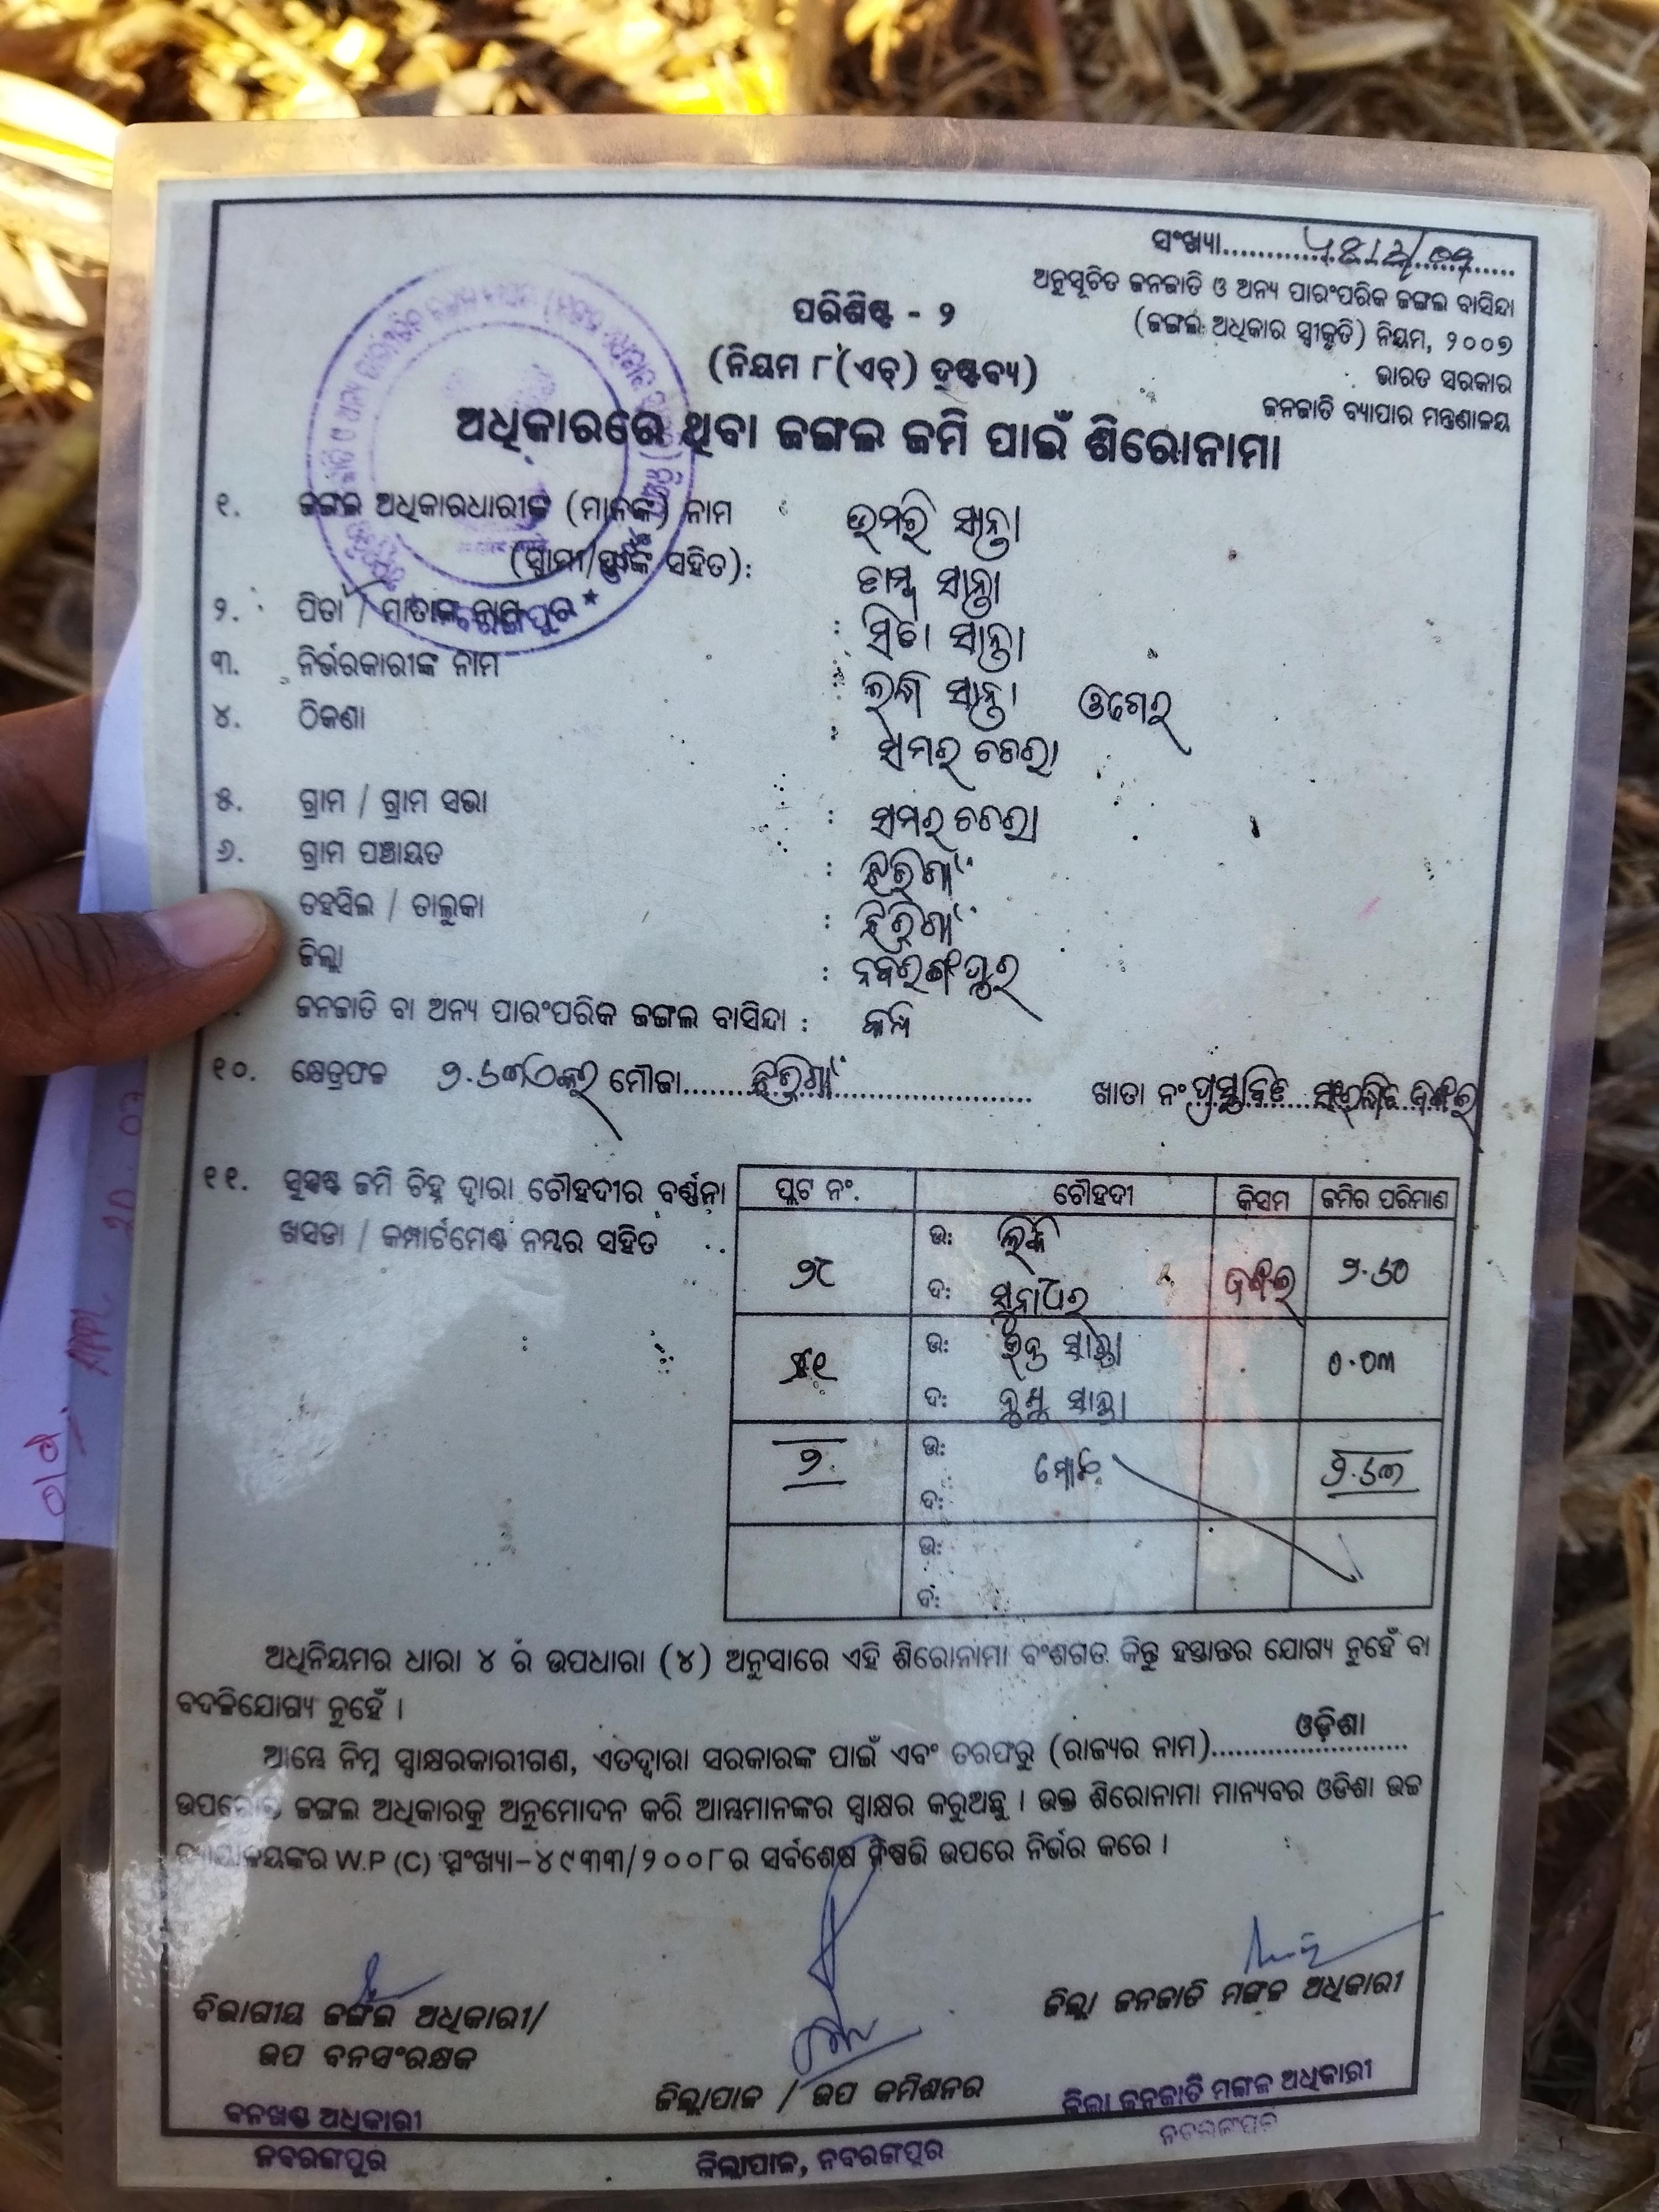 ସଂଖ୍ୟା
ଅନୁସୂଚିତ ଜନଜାତି ଓ ଅନ୍ୟ ପାରଂପରିକ ଜଙ୍ଗଲ ବାସିନ୍ଦା
(ଜଙ୍ଗଲ ଅଧିକାର ସ୍ୱୀକୃତି) ନିୟମ, ୨୦୦୭
ଭାରତ ସରକାର
ଜନଜାତି ବ୍ୟାପାର ମନ୍ତ୍ରଣାଳୟ
ପରିଶିଷ୍ଟ - ୨
(ନିୟମ ୮(ଏଚ୍) ଦ୍ରଷ୍ଟବ୍ୟ)
ଅଧିକାରରେ ଥିବା ଜଙ୍ଗଲ ଜମି ପାଇଁ ଶିରୋନାମା
୧. ଜଙ୍ଗଲ ଅଧିକାରଧାରୀଙ୍କ (ମାନଙ୍କ) ନାମ : ସାନ୍ତା
(ସ୍ୱାମୀ/ସ୍ତ୍ରୀଙ୍କ ସହିତ): ସାନ୍ତା
୨. ପିତା / ମାତାଙ୍କ ନାମ : ସାନ୍ତା
୩. ନିର୍ଭରକାରୀଙ୍କ ନାମ : ସାନ୍ତା
୪. ଠିକଣା :
୫. ଗ୍ରାମ / ଗ୍ରାମ ସଭା :
୬. ଗ୍ରାମ ପଞ୍ଚାୟତ : ଝରିଗାଁ
ତହସିଲ / ତାଲୁକା : ଝରିଗାଁ
ଜିଲ୍ଲା : ନବରଙ୍ଗପୁର
ଜନଜାତି ବା ଅନ୍ୟ ପାରଂପରିକ ଜଙ୍ଗଲ ବାସିନ୍ଦା :
୧୦. କ୍ଷେତ୍ରଫଳ ୨.୬୩ ମୌଜା ଝରିଗାଁ ଖାତା ନଂ ପ୍ରସ୍ତାବିତ ସଂରକ୍ଷିତ ଜଙ୍ଗଲ
୧୧. ସୁସ୍ପଷ୍ଟ ଜମି ଚିହ୍ନ ଦ୍ୱାରା ଚୌହଦୀର ବର୍ଣ୍ଣନା
ଖସଡା / କମ୍ପାର୍ଟମେଣ୍ଟ ନମ୍ବର ସହିତ
ପ୍ଲଟ ନଂ. ଚୌହଦୀ କିସମ ଜମିର ପରିମାଣ
ଉ:
୨୯ ଜଙ୍ଗଲ ୨.୬୦
ଦ: ସୁନାଧର
ଉ: ସାନ୍ତା
୦.୦୩
ଦ: ସାନ୍ତା
ଉ:
୨ ମୋଟ ୨.୬୩
ଦ:
ଉ:
ଦ:
ଅଧିନିୟମର ଧାରା ୪ ର ଉପଧାରା (୪) ଅନୁସାରେ ଏହି ଶିରୋନାମା ବଂଶଗତ କିନ୍ତୁ ହସ୍ତାନ୍ତର ଯୋଗ୍ୟ ନୁହେଁ ବା
ବଦଳିଯୋଗ୍ୟ ନୁହେଁ ।
ଆମ୍ଭେ ନିମ୍ନ ସ୍ୱାକ୍ଷରକାରୀଗଣ, ଏତଦ୍ୱାରା ସରକାରଙ୍କ ପାଇଁ ଏବଂ ତରଫରୁ (ରାଜ୍ୟର ନାମ) ଓଡ଼ିଶା
ଉପରୋକ୍ତ ଜଙ୍ଗଲ ଅଧିକାରକୁ ଅନୁମୋଦନ କରି ଆମ୍ଭମାନଙ୍କର ସ୍ୱାକ୍ଷର କରୁଅଛୁ । ଉକ୍ତ ଶିରୋନାମା ମାନ୍ୟବର ଓଡିଶା ଉଚ୍ଚ
ନ୍ୟାୟାଳୟଙ୍କର W.P (C) ସଂଖ୍ୟା-୪୯୩୩/୨୦୦୮ର ସର୍ବଶେଷ ନିଷ୍ପତ୍ତି ଉପରେ ନିର୍ଭର କରେ ।
ବିଭାଗୀୟ ଜଙ୍ଗଲ ଅଧିକାରୀ/
ଉପ ବନସଂରକ୍ଷକ
ବନଖଣ୍ଡ ଅଧିକାରୀ
ନବରଙ୍ଗପୁର
ଜିଲ୍ଲାପାଳ / ଉପ କମିଶନର
ଜିଲ୍ଲାପାଳ, ନବରଙ୍ଗପୁର
ଜିଲ୍ଲା ଜନଜାତି ମଙ୍ଗଳ ଅଧିକାରୀ
ଜିଲା ଜନଜାତି ମଙ୍ଗଳ ଅଧିକାରୀ
ନବରଙ୍ଗପୁର